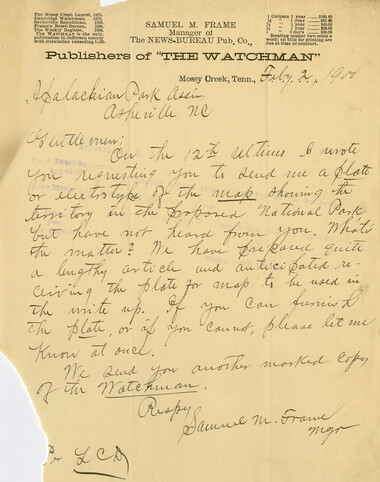 The Mossy Creek Leader, 1871.
Dandridge Watchman, 1875.
Frame's News-Bureau,
The Weekly Register, 1898.
The WATCHMAN is the only
publication in Jefferson county
with circulation exceeding 1,000.
SAMUEL M. FRAME
Manager of
The NEWS-BUREAU Pub. Co.,
1 Column 1 year
Reading matter two cents a
word; all bills for printing are
due at time of contract.
Publishers of "THE WATCHMAN"
Mossy Creek, Tenn., Feby. 2, 1900
Apalachian Park Assn
Asheville NC
Gentlemen:
On the 12th ultimo I wrote
you requesting you to send me a plate
or electrotype of the map showing the
territory in the proposed National Park
but have not heard from you. What's
the matter? We have prepared quite
a lengthy article and anticipated re-
ceiving the plate for map to be used in
the write up. If you can furnish
the plate, or if you cannot, please let me
know at once.
We send you another marked copy
of the Watchman.
Respy
Samuel M. Frame
Mgr
Per LCD